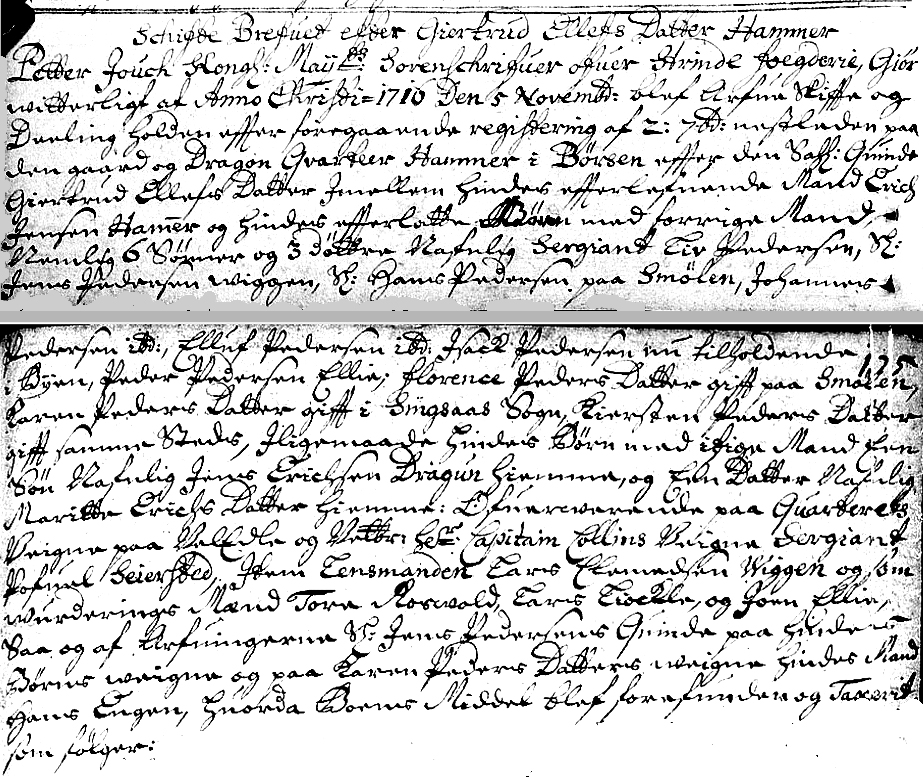 Schifte Brefuet efter Giertrud Ellefs Datter Hammer
Petter Jouch Kongl: Maÿtts: Sorenschrifuer ofuer Strinde fogderie, Giør
witterligt at Anno Christi=1710 Den 5 Novembd: blef Arfue Skifte og
Deeling holden effter foregaaende registering af 2: 7bd: nestleden paa
den gaard og Dragon Qvarteer Hammer i Børsen effter den Sahl: Quinde
Giertrud Ellefs Datter Imellem hindes effterlefuende Mand Erich
Jensen Hamer og hindes effterlatte Børn med forrige Mand,
Nemlig 6 Sønner og 3 døttre Nafnlig Sergiant Siv Pedersen, Sl:
Jens Pedersen wiggen, Sl: Hans Pedersen paa Smølen, Johannes
Pedersen ibd:, Elluf Pedersen ibd: Isack Pedersen nu tilholdende
125
i Byen, Peder Pedersen Ellie; Florence Peders Datter gifft paa Smølen,
Karen Peders Datter gifft i Singsaas Sogn, Kiersten Peders Datter
gifft samme Steds, Iligemaade hindes Børn med itzige Mand Een
Søn Nafnlig Jens Erichsen Dragun hiemme, og Een Datter Nafnlig
Maritte Erichs Datter hiemme: Ofuerwerende paa Quarterets
Veigne paa VelEdle og Velbr: her Capitain Collins Veigne Sergiant
Pofuel Seiersted, Item Lensmanden Lars Clemedsen Wiggen og som
wurderings Mænd Tore Roswold, Lars Liockle, og Joen Ellie,
Saa og af Arfuingerne Sl: Jens Pedersens Quinde paa hindes
Børns weigne og paa Karen Peders Datters weigne hindes Mand
Hans Engen, huorda Boens Middel blef forefunden og Taxerit
som følger: